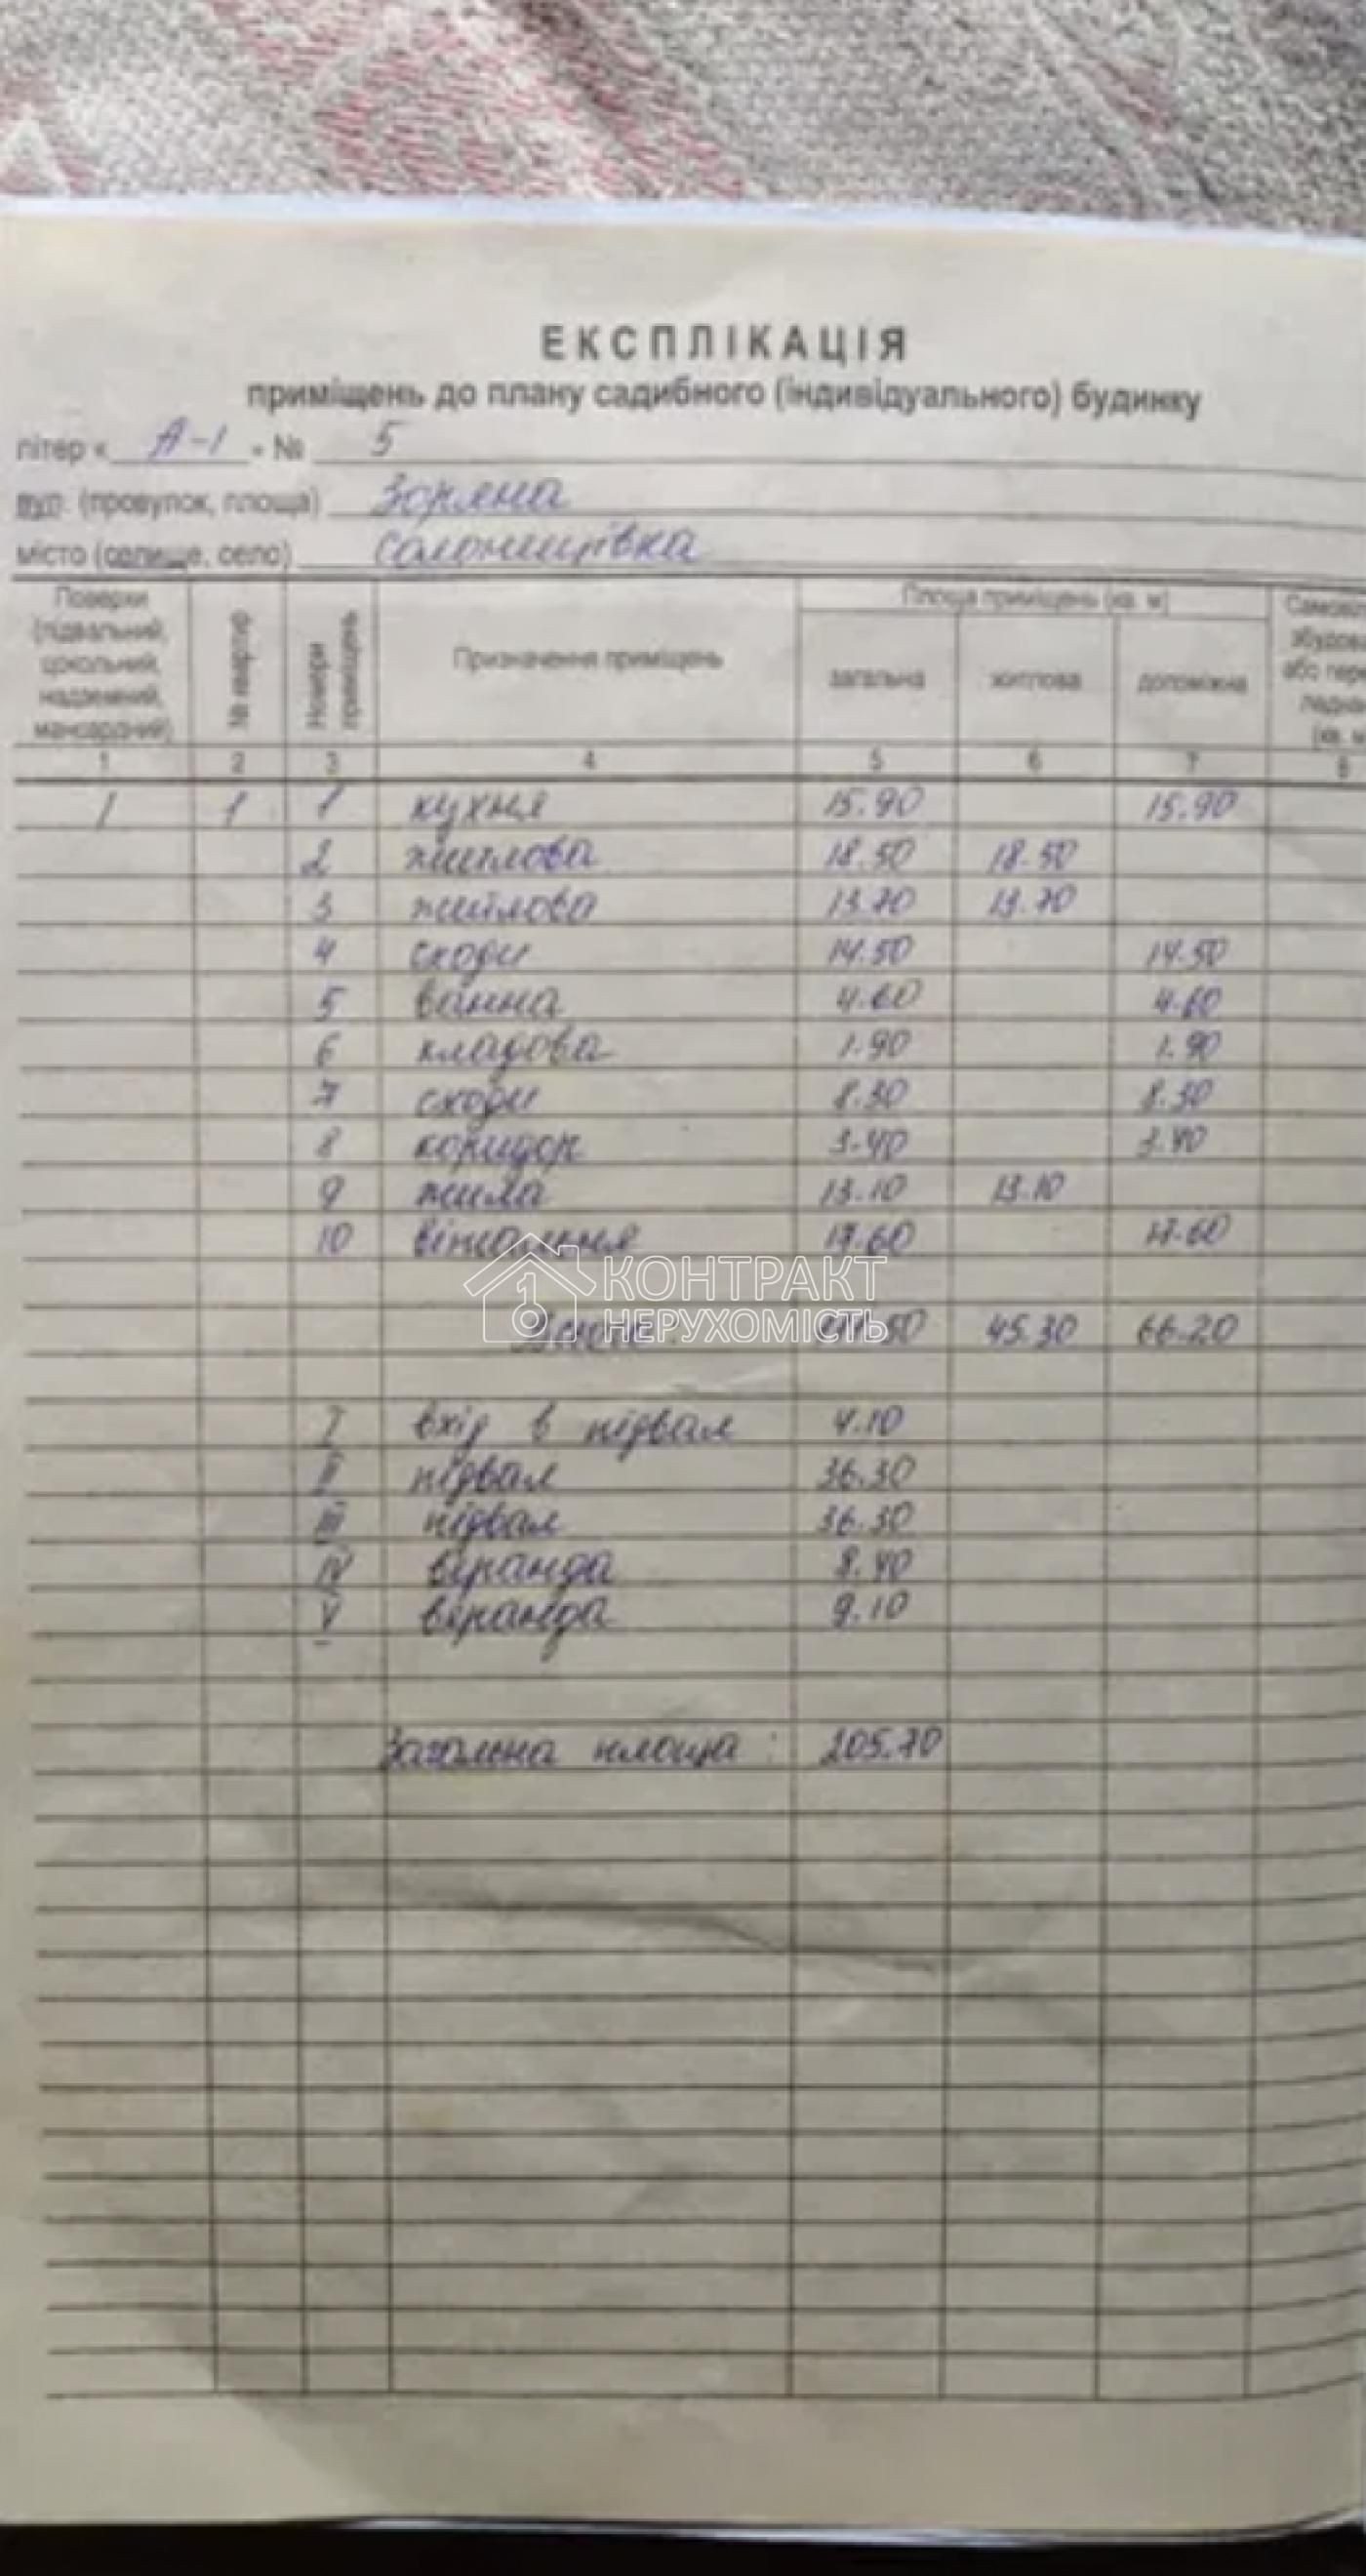 ЕКСПЛІКАЦІЯ
приміщень до плану садибного (індивідуального) будинку
літер « А-І » № 5
вул. (провулок, площа) Зоряна
місто (селище, село) Солоницівка
Поверхи (підвальний, цокольний, надземний, мансардний) № квартир Номери приміщень Призначення приміщень Площа приміщень (кв. м) загальна житлова допоміжна
1 2 3 4 5 6 7 8
1 1 1 кухня 15.90 15.90
2 житлова 18.50 18.50
3 житлова 13.70 13.70
4 сходи 14.50 14.50
5 ванна 4.60 4.60
6 кладова 1.90 1.90
7 сходи 8.30 8.30
8 коридор 3.40 3.40
9 жила 13.10 13.10
10 вітальня 17.60 17.60
КОНТРАКТ
НЕРУХОМІСТЬ
45.30 66.20
I вхід в підвал 4.10
II підвал 36.30
III підвал 36.30
IV веранда 8.40
V веранда 9.10
Загальна площа : 205.70